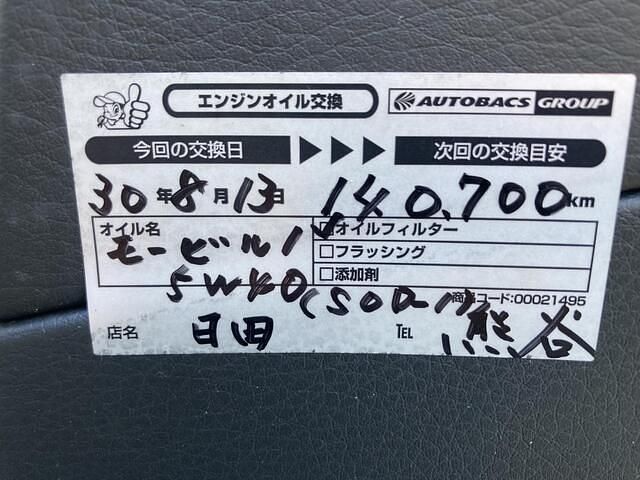 エンジンオイル交換 AUTOBACS GROUP
今回の交換日 次回の交換目安
30年8月13日 140,700km
オイル名 モービル1 ☑オイルフィルター
□フラッシング
5W40 □添加剤
商品コード:00021495
店名 日田 TEL 熊谷